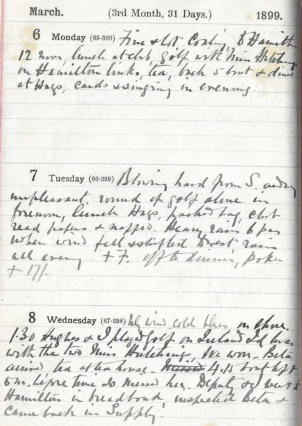 March. (3rd Month, 31 Days.) 1899.
6 Monday (65-300) Fine & hot. Coaling. To Hamilton
12 noon, lunch at club, golf with Miss Hutchings
on Hamilton links, tea, back 5 boat & dined
at Hags, cards & singing in evening.
7 Tuesday (66-299) Blowing hard from S. and
unpleasant. round of golf aline in
forenoon, lunch Hags, packed bag, club
read papers & napped. Heavy rain 6 pm
when wind fell & shifted to West, rain
all evening + 7. off to dinner, poker
+ 17/-
8 Wednesday (67-298) wind, cold
1.30 Hughes & I played golf on Ireland Id
with the two Miss Hutchings, We won. Beta
arrived, tea at tea house. 4.15 boat
time to messed her. Deputy
Hamilton in inspected Beta &
came back in Supply.